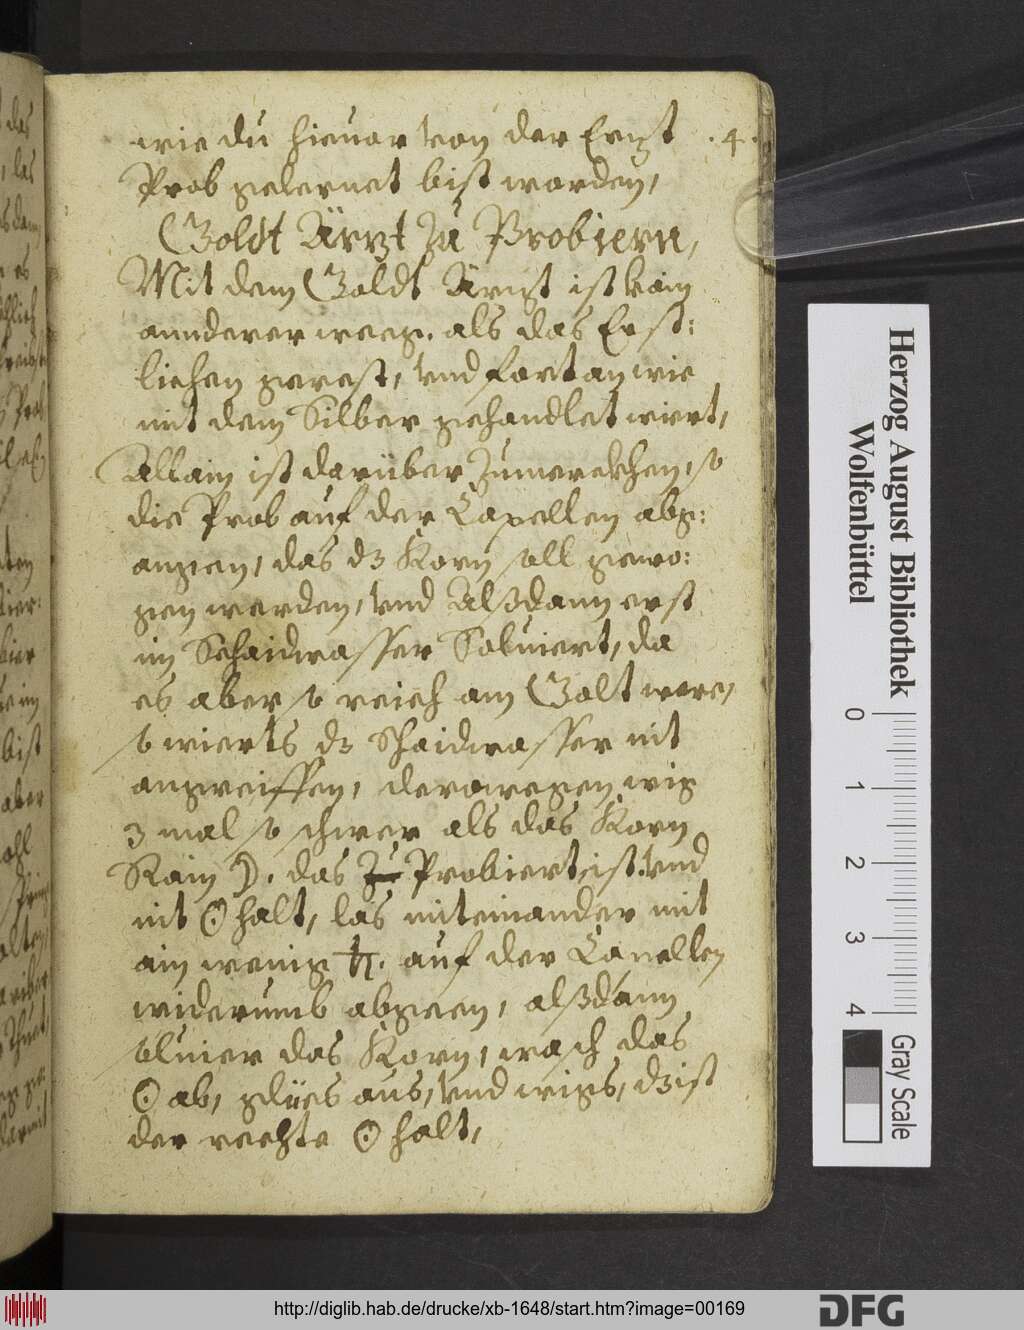 wie du hieuor von der Erzt .4.
Prob gelernet bist worden,
Goldt Ärzt Zu Probiern,
Mit dem Goldt Ärzt ist kain
annderer weeg. als das Erst:
lichen geröst, vnd fortan wie
mit dem Silber gehandlet wirt,
Allain ist darüber Zumerckhen, so
die Prob auf der Capellen abge:
angen, das dz Korn soll gewo:
gen werden, vnd Alßdann erst
im Schaidwasser Soluiert, da
es aber so reich am Golt were,
so wierts dz Schaidwasser nit
angreiffen, derowegen wig
3 mal so schwer als das Korn
Rain ☽. das Probiert ist. vnd
nit ☉ halt, las miteinander mit
ain wenig ♄. auf der Capellen
widerumb abgeen, alßdann
soluier das Korn, wasch das
☉ ab, glües aus, vnd wigs, dz ist
der rechte ☉ halt,
Herzog August Bibliothek
Wolfenbüttel
0 1 2 3 4
Gray Scale
http://diglib.hab.de/drucke/xb-1648/start.htm?image=00169
DFG